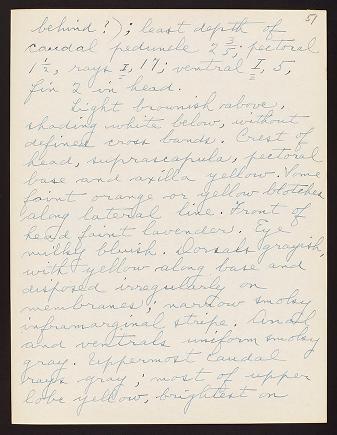 51
behind?); least depth of
caudal peduncle 2 3/5; pectoral
1 1/2, rays I, 17; ventral I, 5,
fin 2 in head.
Light brownish above,
shading white below, without
defined cross bands. Crest of
head, suprascapula, pectoral
base and axilla yellow. Some
faint orange or yellow blotches
along lateral line. Front of
head faint lavender. Eye
milky bluish. Dorsals grayish,
with yellow along base and
disposed irregularly on
membranes; narrow smoky
inframarginal stripe. Anal
and ventrals uniform smoky
gray. Uppermost caudal
rays gray; most of upper
lobe yellow, brightest on